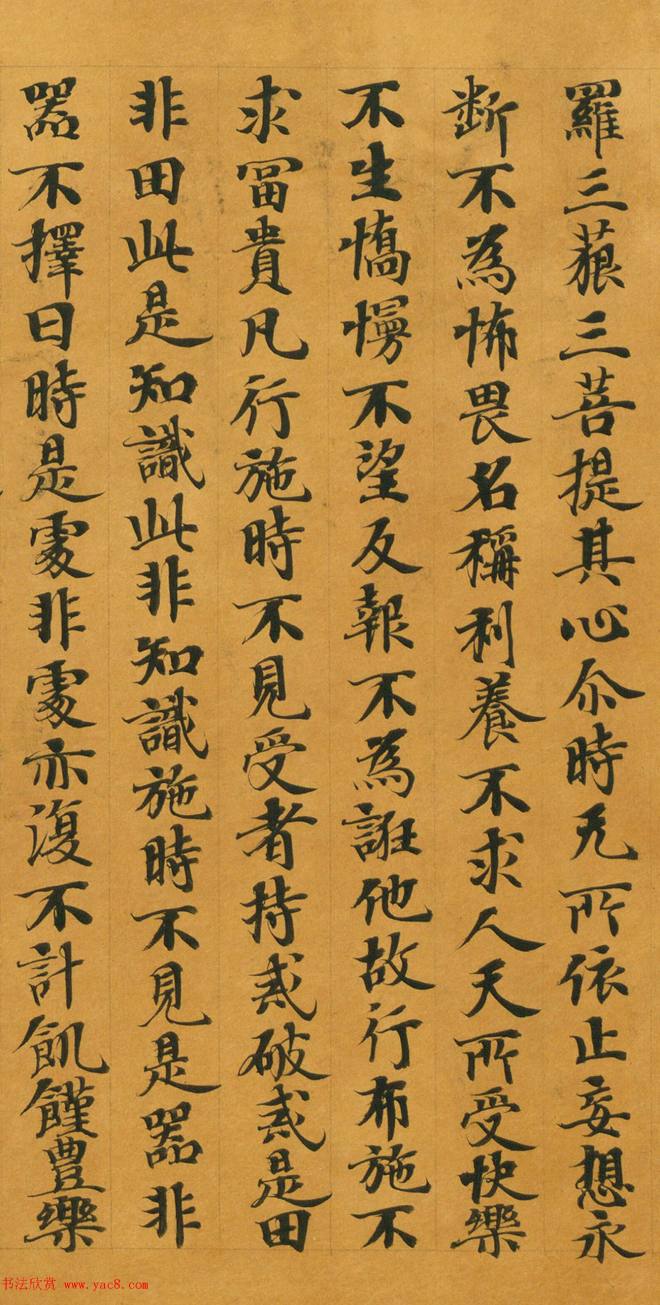 羅三藐三菩提其心尒時无所依止妄想永
断不為怖畏名稱利養不求人天所受快樂
不生憍慢不望反報不為誑他故行布施不
求冨貴凡行施時不見受者持戒破戒是田
非田此是知識此非知識施時不見是器非
器不擇日時是處非處亦復不計飢饉豊樂
书法欣赏 www.yac8.com